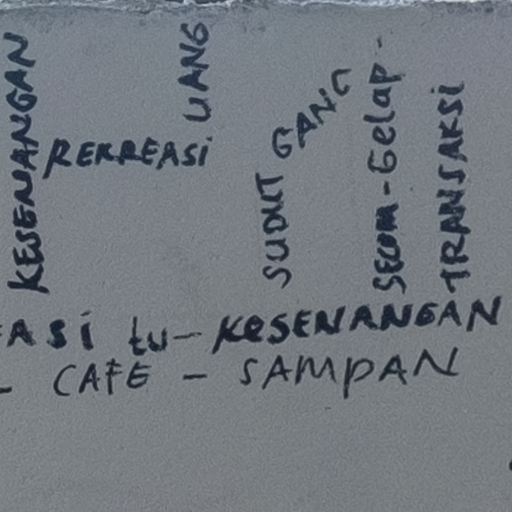 KESENANGAN
REKREASI
UANG
SUDUT GANG
SECOM-Gelap-
TRANSAKSI
ASi tu-KESENANGAN
- CAFE - SAMPAN